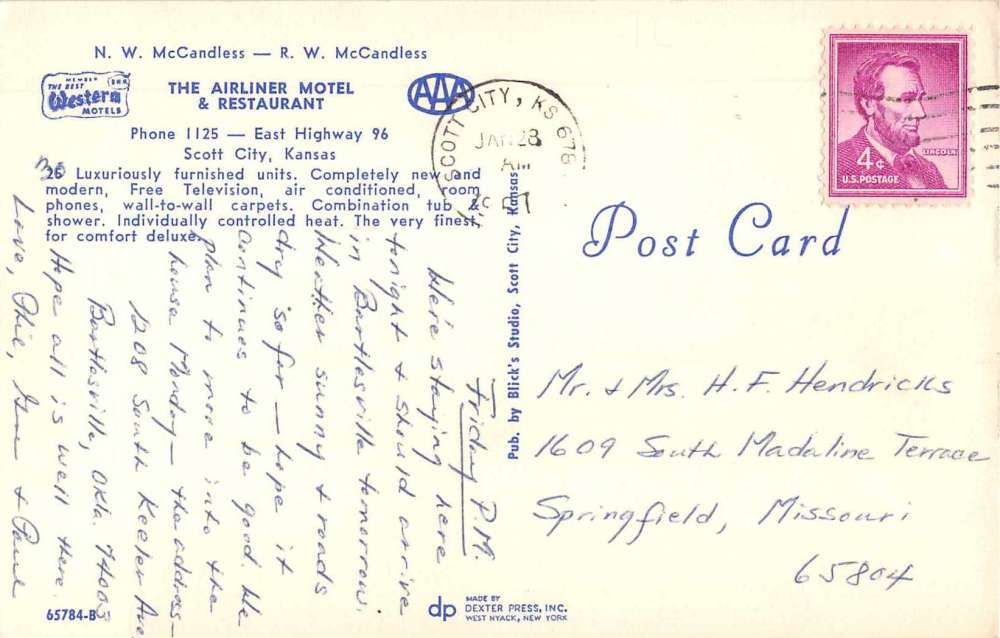 N. W. McCandless — R. W. McCandless
MEMBER
THE BEST
Western
MOTELS
THE AIRLINER MOTEL
& RESTAURANT
AAA
Phone 1125 — East Highway 96
Scott City, Kansas
26 Luxuriously furnished units. Completely new and
modern, Free Television, air conditioned, room
phones, wall-to-wall carpets. Combination tub &
shower. Individually controlled heat. The very finest,
for comfort deluxe.
36
SCOTT CITY, KS 678
JAN 28
AM
4¢
LINCOLN
U.S. POSTAGE
Post Card
Friday P.M.
We're staying here
tonight & should arrive
in Bartlesville tomorrow.
Weather sunny & roads
dry so far – hope it
continues to be good. We
plan to move into the
house Monday – the address –
1208 South Keeler Ave
Bartlesville, Okla. 74003
Hope all is well there.
Love, Phil, & Paul
Pub. by Blick's Studio, Scott City, Kansas
Mr. & Mrs. H. F. Hendricks
1609 South Madaline Terrace
Springfield, Missouri
65804
65784-B
dp
MADE BY
DEXTER PRESS, INC.
WEST NYACK, NEW YORK